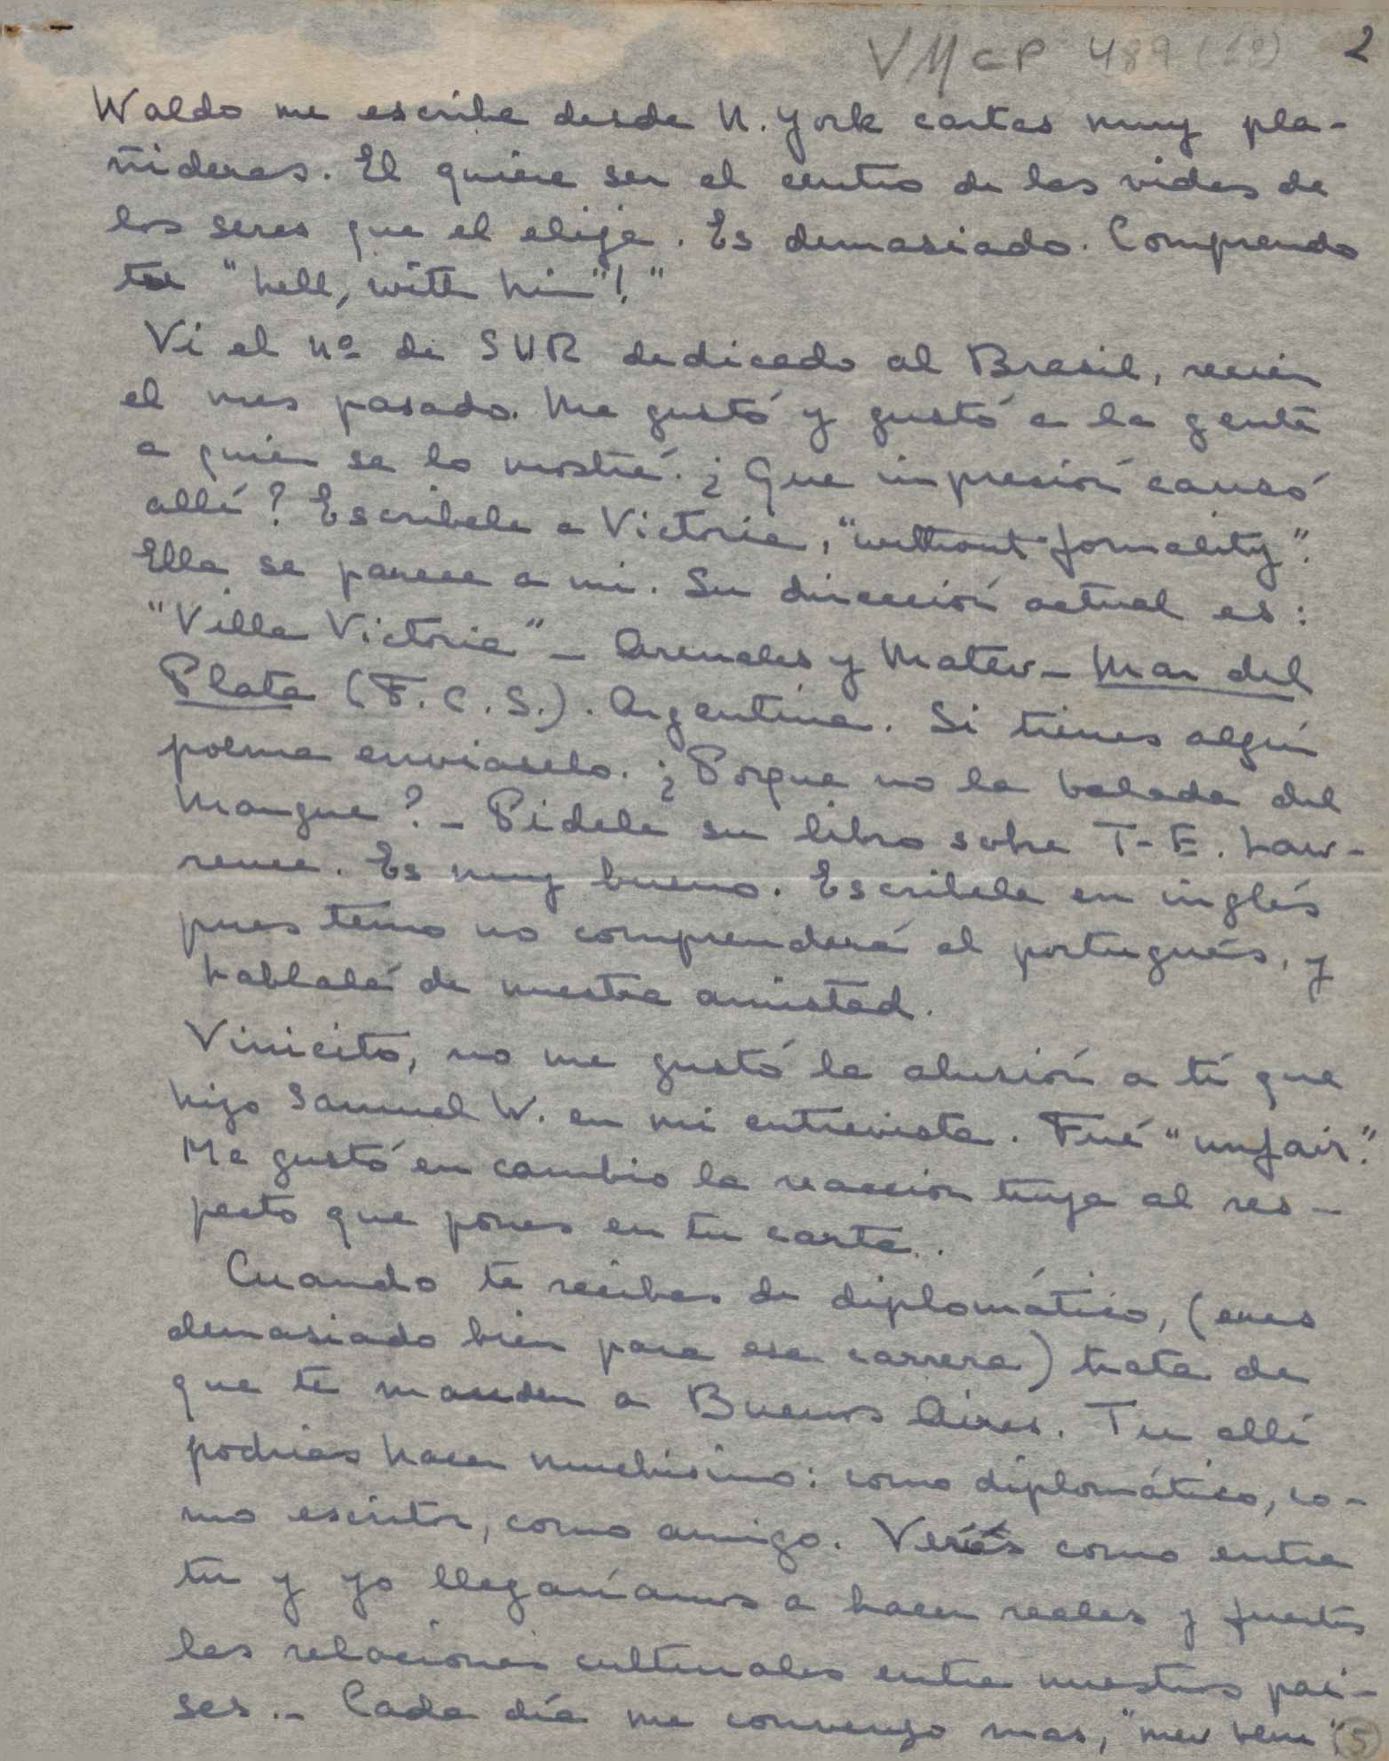 VMCP 489 (10) 2
Waldo me escribe desde N. York cartas muy pla-
ñideras. El quiere ser el centro de las vidas de
los seres que el elije. Es demasiado. Comprendo
tu "hell, with him"!"
Vi el nº de SUR dedicado al Brasil, recien
el mes pasado. Me gustó y gustó a la gente
a quien se lo mostré. ¿Que impresión causó
allí? Escribele a Victoria, "without formality".
Ella se parece a mi. Su dirección actual es:
"Villa Victoria" – Arenales y Mateu – Mar del
Plata (F.C.S.). Argentina. Si tienes algún
poema enviaselo. ¿Porque no la balada del
Mangue? – Pidele su libro sobre T-E. Law-
rence. Es muy bueno. Escribele en inglés
pues temo no comprenderá el portugués, y
hablalé de nuestra amistad.
Vinicito, no me gustó la alusión a tí que
hizo Samuel W. en mi entrevista. Fué "unfair".
Me gustó en cambio la reacción tuya al res-
pecto que pones en tu carta..
Cuando te recibas de diplomático, (eres
demasiado bien para esa carrera) trata de
que te manden a Buenos Aires. Tu allí
podrias hacer muchisimo: como diplomático, co-
mo escritor, como amigo. Verás como entre
tu y yo llegaríamos a hacer reales y fuertes
las relaciones culturales entre nuestros paí-
ses. – Cada día me convenzo mas, "meu bem" (5)